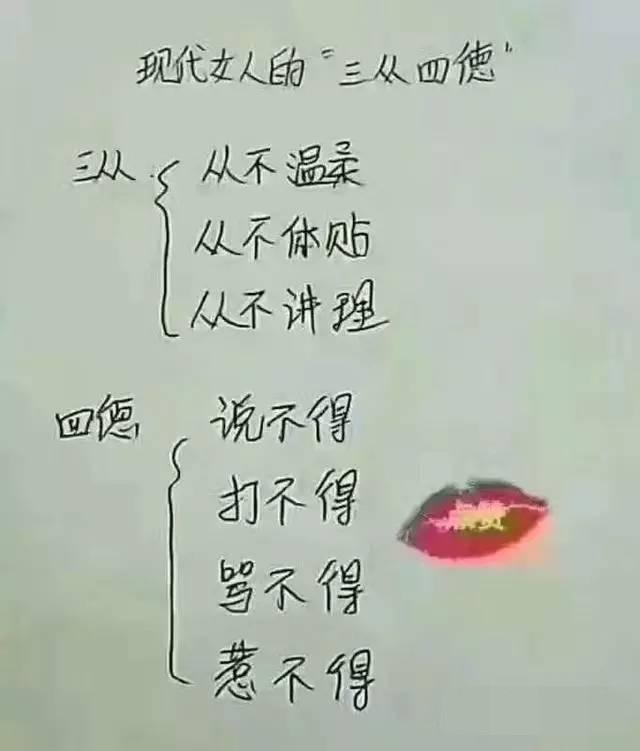 现代女人的"三从四德"
三从 从不温柔
从不体贴
从不讲理
四德 说不得
打不得
骂不得
惹不得